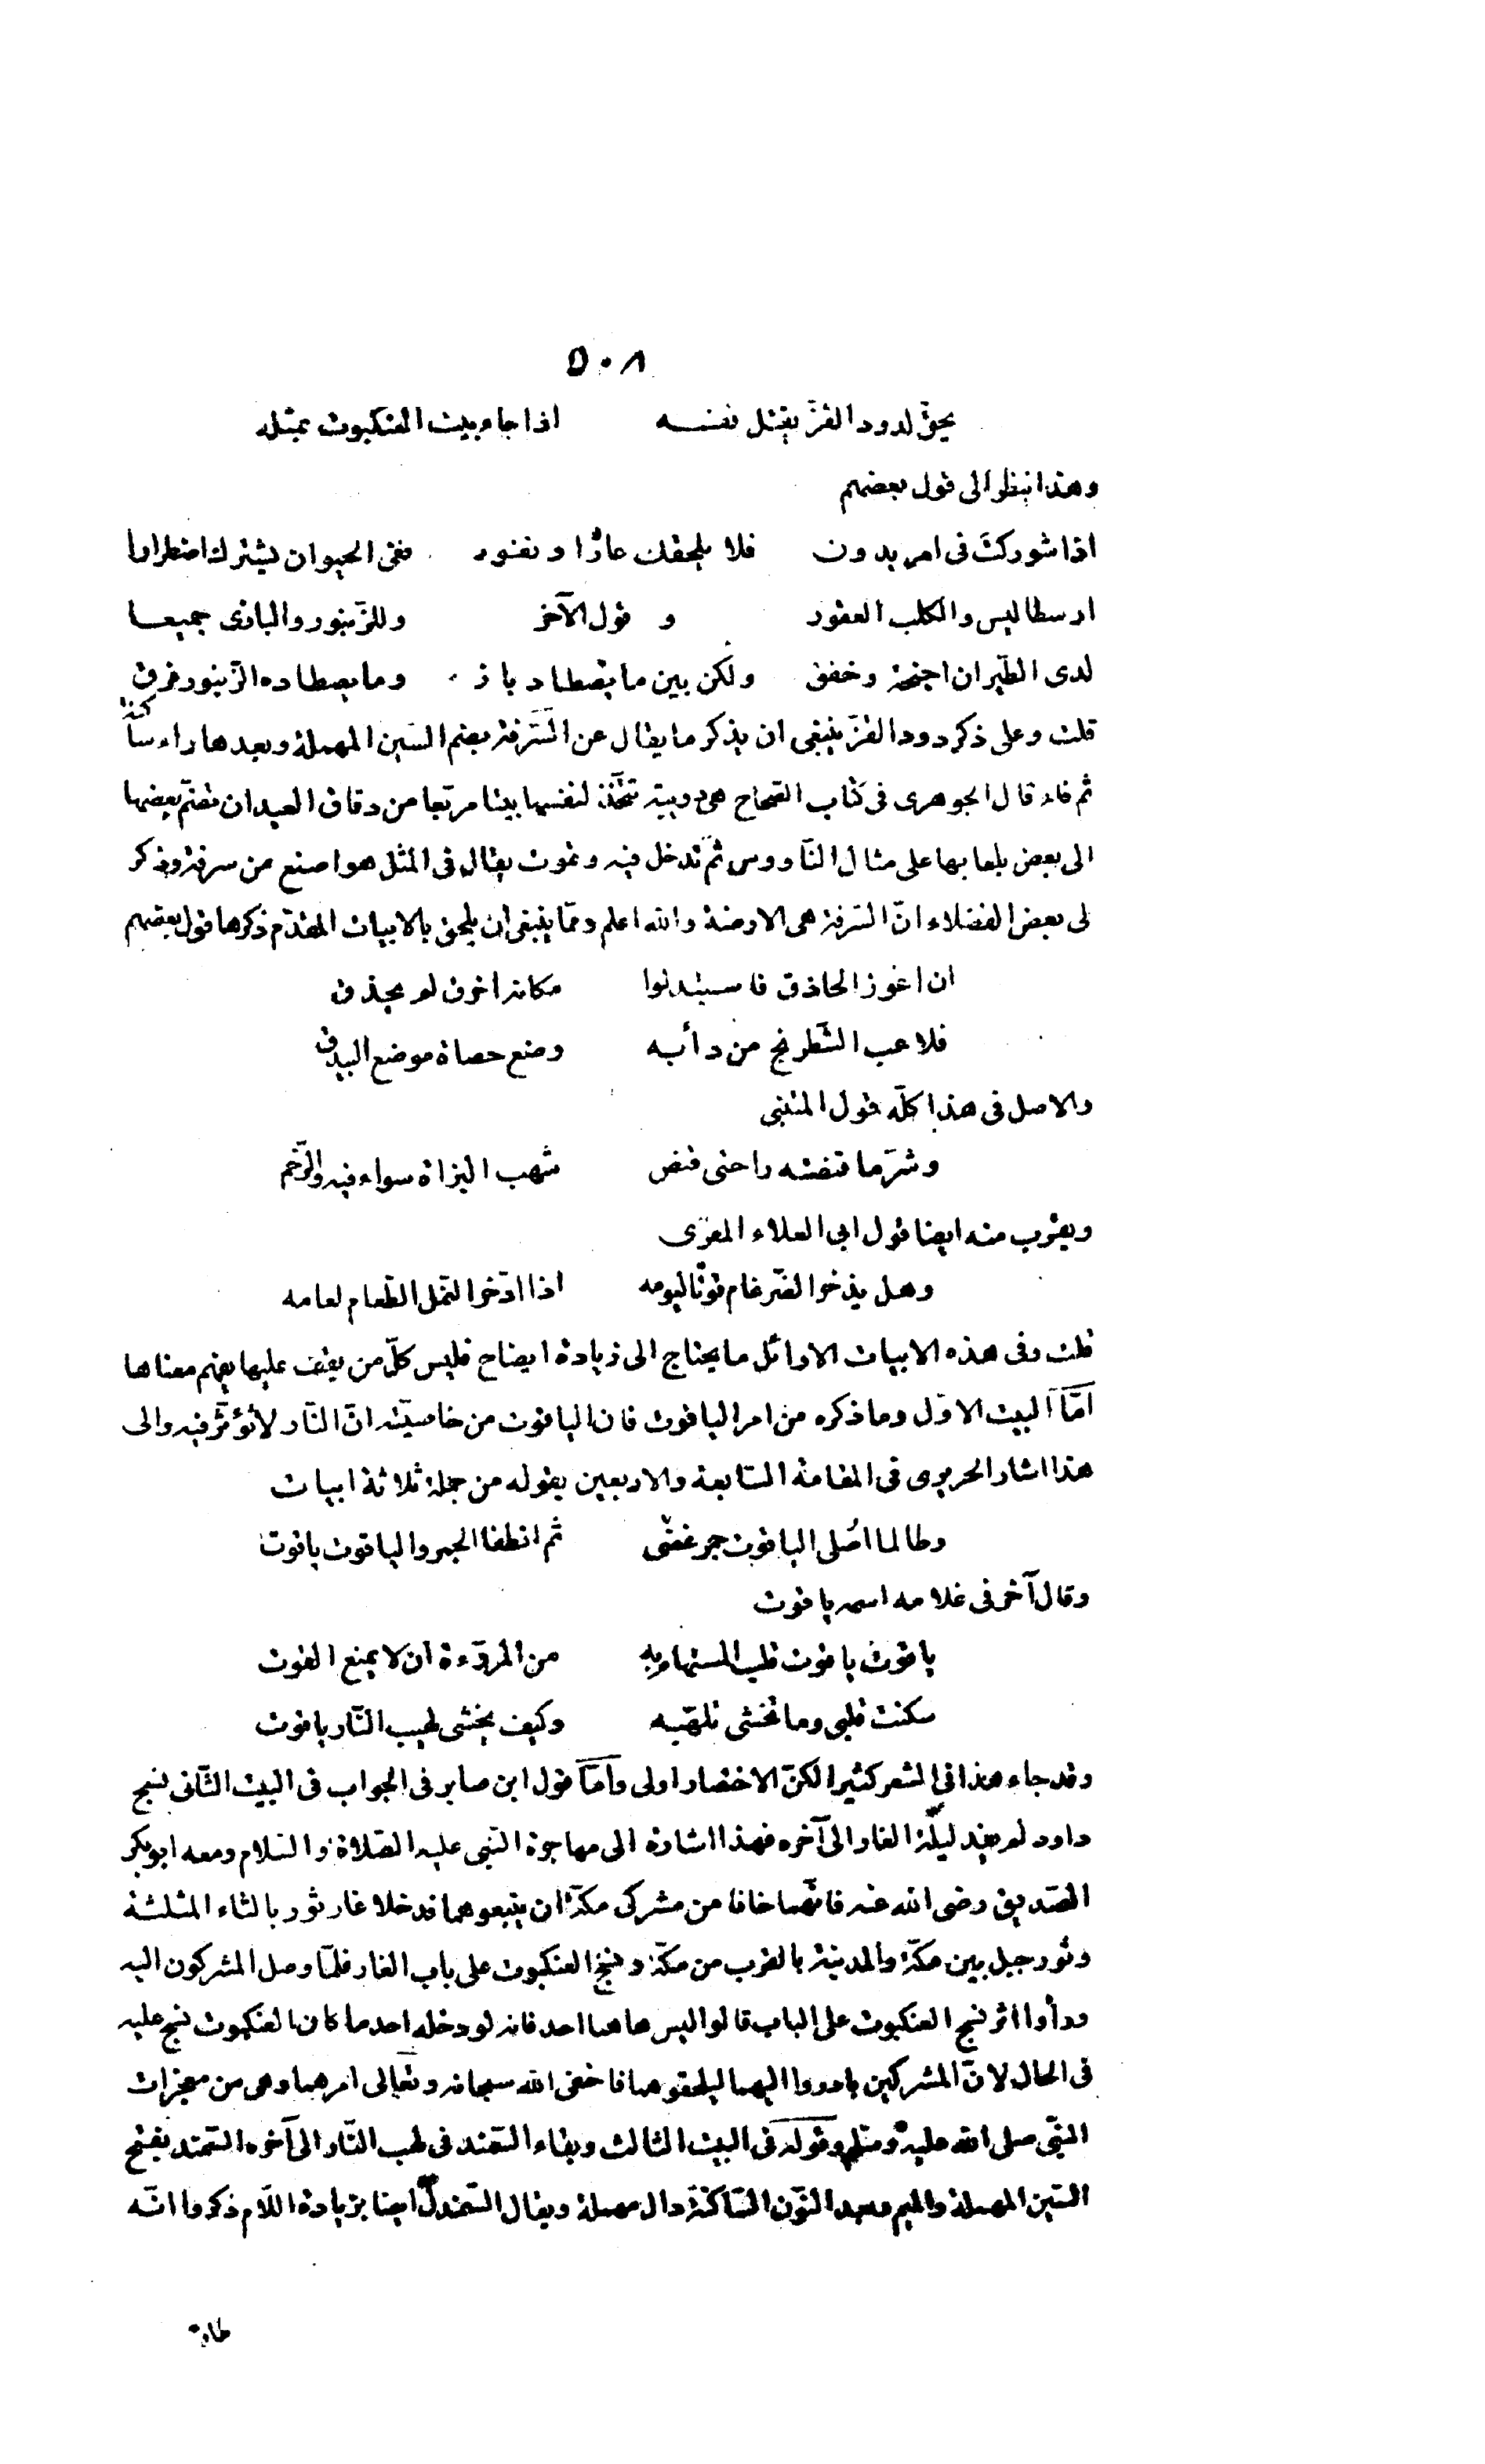 ٥٠٨
يحقّ لدود القزّ يقتل نفسه اذا جاء بيت العنكبوت بمثله
وهذا ينظر الى قول بعضهم
اذا شوركت فى امر بدون فلا يلحقك عارٌ او نفور ففى الحيوان يشترك اضطرارا
ارسطاليس والكلب العقور و قول الآخر وللزّنبور والبازى جميعا
لدى الطّيران اجنحة وخفق ولكن بين ما يصطاد باز وما يصطاده الزّنبور فرق
قلت وعلى ذكر دود القزّ ينبغى ان يذكر ما يقال عن السّرفة بضم السّين المهملة وبعدها راء ساكنة
ثم فاء قال الجوهرى فى كتاب الصّحاح هى دويبة تتّخذ لنفسها بيتا مربّعا من دقاق العيدان تضمّ بعضها
الى بعض بلعابها على مثال النّاووس ثمّ تدخل فيه وتموت يقال فى المثل هو اصنع من سرفة وذكر
لى بعض الفضلاء انّ السّرفة هى الارضة والله اعلم وممّا ينبغى ان يلحق بالابيات المقدّم ذكرها قول بعضهم
ان اعوز الحاذق فاستبدلوا مكانه اخرق لم يحذق
فلاعب الشّطرنج من دأبه وضع حصاة موضع البيدق
والاصل فى هذا كلّه قول المتنبى
وشرّ ما قنصته راحتى قنص شهب البزاة سواء فيه والرّخم
ويقرب منه ايضا قول ابى العلاء المعرّى
وهل يذخر الضّرغام قوتًا ليومه اذا ادّخر النّمل الطّعام لعامه
قلت وفى هذه الابيات الاوائل ما يحتاج الى زيادة ايضاح فليس كلّ من يقف عليها يفهم معناها
امّا البيت الاوّل وما ذكره من امر الياقوت فان الياقوت من خاصيّته انّ النّار لا تؤثّر فيه والى
هذا اشار الحريرى فى المقامة السّابعة والاربعين بقوله من جملة ثلاثة ابيات
وطالما اصلى الياقوت جمر غضًى ثم انطفا الجمر والياقوت ياقوت
وقال آخر فى غلامه اسمه ياقوت
ياقوت ياقوت قلب المستهام به من المروّءة ان لا يمنع القوت
سكنت قلبى وما تخشى تلهّبه وكيف يخشى لهيب النّار ياقوت
وقد جاء هذا فى الشعر كثيرا لكنّ الاختصار اولى وامّا قول ابن صابر فى الجواب فى البيت الثّانى نسج
داود لم يفد ليلة الغار الى آخره فهذا اشارة الى مهاجرة النّبى عليه الصّلاة والسّلام ومعه ابو بكر
الصّديق رضى الله عنه فانّهما خافا من مشركى مكّة ان يتبعوهما فدخلا غار ثور بالثاء المثلثة
وثور جبل بين مكّة والمدينة بالقرب من مكّة ونسج العنكبوت على باب الغار فلمّا وصل المشركون اليه
ورأوا اثر نسج العنكبوت على الباب قالوا ليس هاهنا احد فانه لو دخله احد ما كان العنكبوت نسج عليه
فى الحال لانّ المشركين بادروا اليهما ليلحقوهما فاخفى الله سبحانه وتعالى امرهما وهى من معجزات
النّبى صلى الله عليه وسلم وقوله فى البيت الثالث وبقاء السّمند فى لهب النّار الى آخره السّمند بفتح
السّين المهملة والميم وبعد النّون السّاكنة دال مهملة ويقال السّمندل ايضا بزيادة اللّام ذكروا انّه
طائر